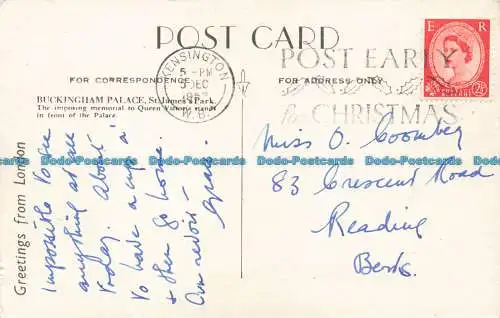 POST CARD
KENSINGTON
5 - PM
5 DEC
W.8.
POST EARLY
for CHRISTMAS
E R
2½
FOR CORRESPONDENCE
FOR ADDRESS ONLY
BUCKINGHAM PALACE, St. James's Park.
The imposing memorial to Queen Victoria stands
in front of the Palace.
Greetings from London
Impossible to see
anything at all
today. About
to have a cuppa
& then go home.
Au revoir
Miss O. Coombey
83 Crescent Road
Reading
Berks.
Dodo-Postcards Dodo-Postcards Dodo-Postcards Dodo-Postcards Dodo-Postcards